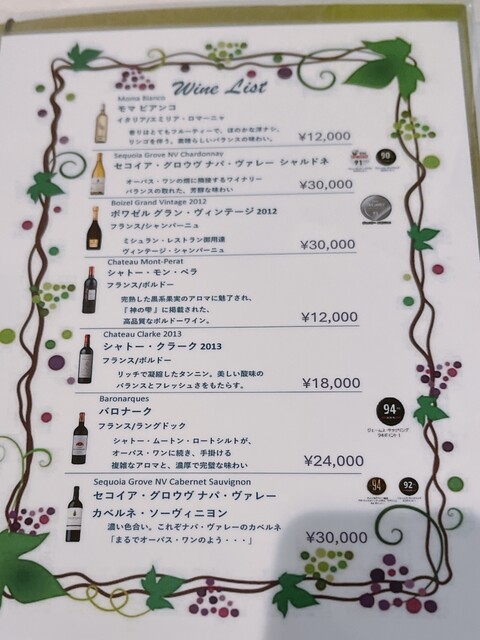 Wine List
Moma Bianco
モマ ビアンコ
イタリア/エミリア・ロマーニャ
香りはとてもフルーティーで、ほのかな洋ナシ、
リンゴを伴う。素晴らしいバランスの味わい
¥12,000
Sequoia Grove NV Chardonnay
セコイア・グロウヴ ナパ・ヴァレー シャルドネ
オーパス・ワンの隣に隣接するワイナリー
バランスの取れた、芳醇な味わい
90
¥30,000
Boizel Grand Vintage 2012
ボワゼル グラン・ヴィンテージ 2012
フランス/シャンパーニュ
ミシュラン・レストラン御用達
ヴィンテージ・シャンパーニュ
¥30,000
Chateau Mont-Perat
シャトー・モン・ペラ
フランス/ボルドー
完熟した黒系果実のアロマに魅了され、
『神の雫』に掲載された、
高品質なボルドーワイン。
¥12,000
Chateau Clarke 2013
シャトー・クラーク 2013
フランス/ボルドー
リッチで凝縮したタンニン。美しい酸味の
バランスとフレッシュさをもたらす。
¥18,000
Baronarques
バロナーク
フランス/ラングドック
シャトー・ムートン・ロートシルトが、
オーパス・ワンに続き、手掛ける
複雑なアロマと、濃厚で完璧な味わい
94
¥24,000
Sequoia Grove NV Cabernet Sauvignon
セコイア・グロウヴ ナパ・ヴァレー
カベルネ・ソーヴィニヨン
濃い色合い。これぞナパ・ヴァレーのカベルネ
「まるでオーパス・ワンのよう・・・」
94
92
¥30,000